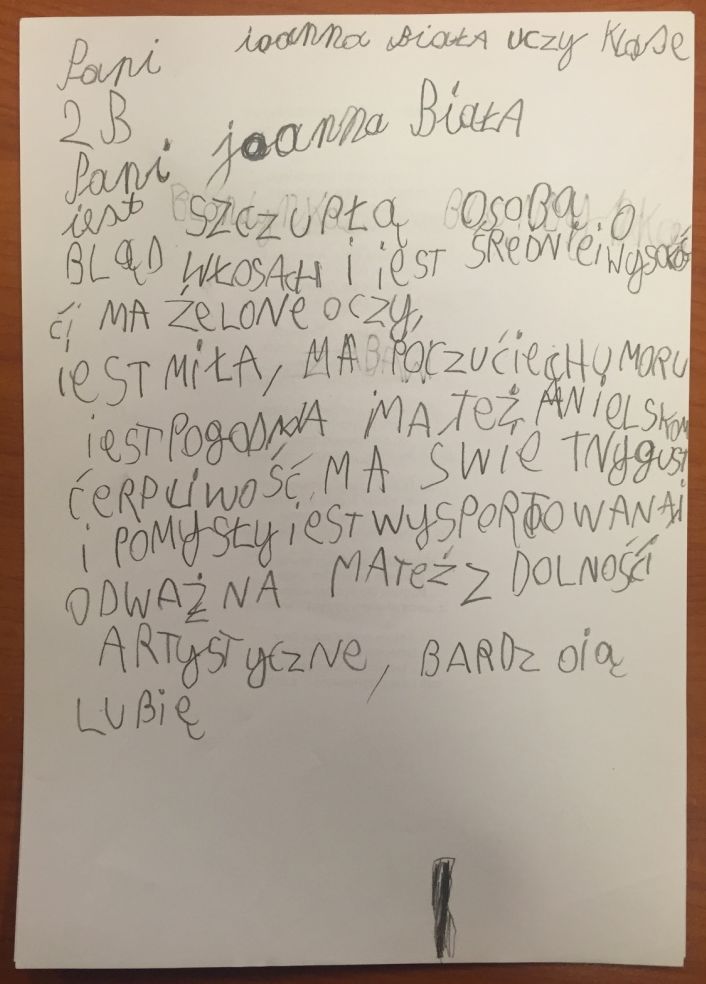 Pani ioanna BiAłA uczy klase
2 B
Pani joanna BiałA
iest SZCZUPŁĄ OSOBĄ O
BLĄD WŁOSAH I iEST ŚREDNiEiwysokoś
ći MA ŻELONE OCZY,
iEST MiŁA, MA POCZUĆIE HUMORU
iEST POGODNA MA TEŻ ANiELSKOM
ĆERPLiWOŚĆ, MA SWIETNY GUST
i POMYSŁY iEST WYSPORTOWANA i
ODWAŻNA MA TEŻ ZDOLNOŚĆi
ARTYSTYCZNE, BARDZ OiĄ
LUBiĘ